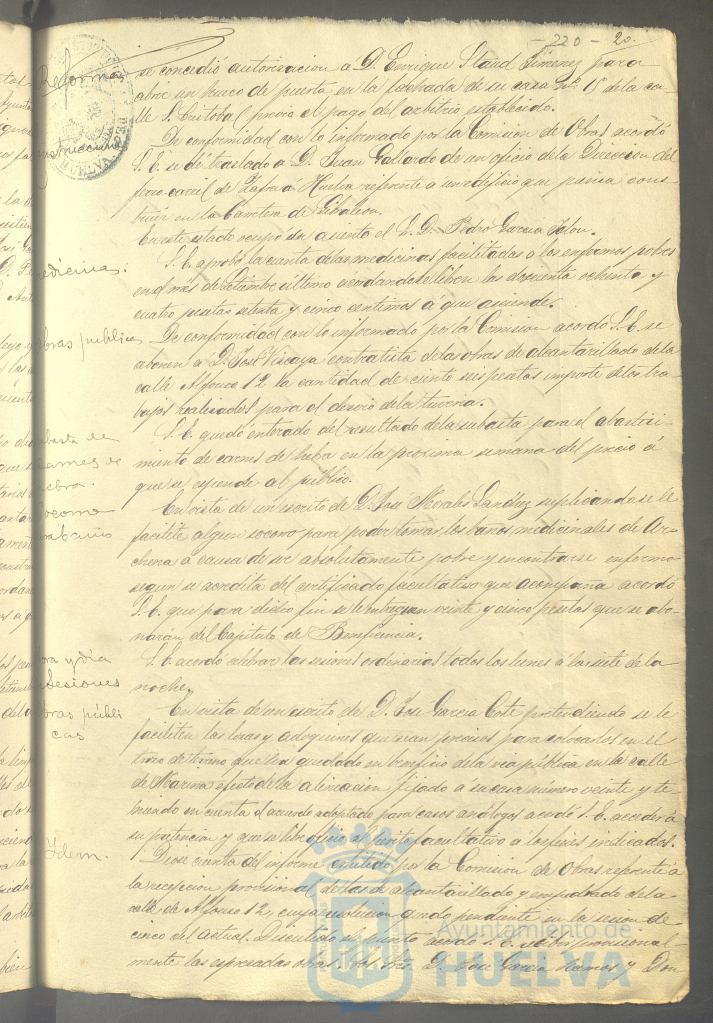 - 220 - 20.
Reformas
se concedió autorizacion a D. Enrique Staud Jimenez para
abrir un hueco de puerta en la fachada de su casa nº 15 de la ca-
lle S. Cristobal previo el pago del arbitrio establecido.
De conformidad con lo informado por la Comision de Obras acordó
S. E. se dé traslado a D. Juan Gallardo de un oficio de la Direccion del
ferro-carril de Zafra a Huelva referente a un edificio que piensa cons-
truir en la Carretera de Gibraleon.
En este estado ocupó su asiento el Sr. D. Pedro Garcia Jalon.
Medicinas.
S. E. aprobó la cuenta de las medicinas facilitadas a los enfermos pobres
en el mes de Setiembre último acordando se libren las doscientas ochenta y
cuatro pesetas setenta y cinco centimos á que asciende.
Obras publicas
De conformidad con lo informado por la Comision acordó S. E. se
abonen a D. José Vizcaya contratista de las obras de alcantarillado de la
calle Alfonso 12 la cantidad de ciento seis pesetas importe de los tra-
bajos realizados para el desvio de la tuberia.
Subasta de
carnes de
hebra.
S. E. quedó enterado del resultado de la subasta para el abasteci-
miento de carnes de hebra en la proxima semana del precio á
que se espende al público.
Socorro
para baños
En vista de un escrito de D. José Morales Sandez suplicando se le
facilite algun socorro para poder tomar los baños medicinales de Ar-
chena a causa de ser absolutamente pobre y encontrarse enfermo
segun se acredita del certificado facultativo que acompaña acordó
S. E. que para dicho fin se le entreguen veinte y cinco pesetas que se abo-
narán del Capitulo de Beneficencia.
Hora y dia
de sesiones
S. E. acordó celebrar las sesiones ordinarias todos los lunes á las siete de la
noche.
Obras públi
cas
En vista de un escrito de D. José Garcia Coste pretendiendo se le
faciliten las losas y adoquines que sean precisos para colocarlos en el
trozo de terreno que ha quedado en beneficio de la via pública en la calle
de Marina efecto de la alineacion fijada a su casa número veinte y te-
niendo en cuenta el acuerdo adoptado para casos análogos acordó S. E. acceder á
su pretencion y que se libre oficio al perito facultativo á los fines indicados.
Idem.
Diose cuenta del informe emitido por la Comision de Obras referente á
la recepcion provisional de las de alcantarillado y empedrado de la
calle de Alfonso 12, cuya resolucion quedó pendiente en la sesion de
cinco del actual. Discutido el punto acordó S. E. recibir provisional-
mente las espresadas obras. Los Sres. D. José Garcia Ramos y Don
Ayuntamiento de
HUELVA